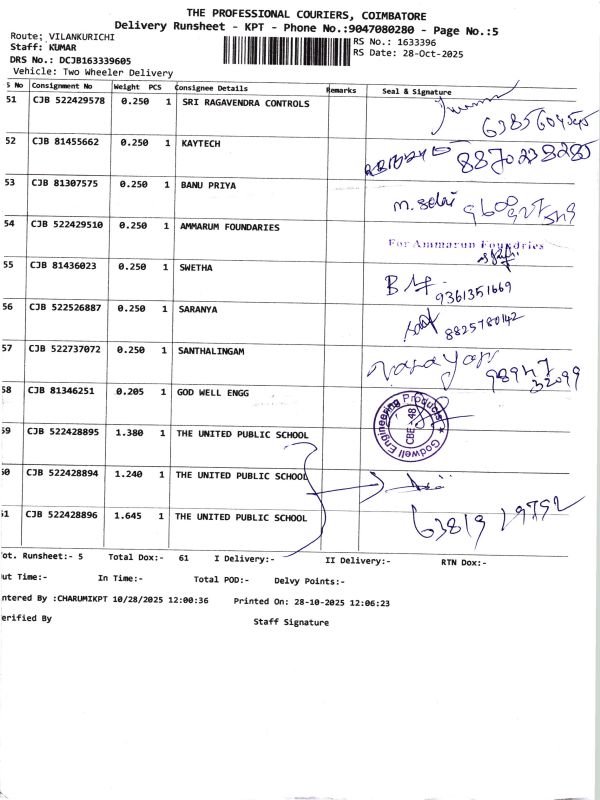 THE PROFESSIONAL COURIERS, COIMBATORE
Delivery Runsheet - KPT - Phone No.:9047080280 - Page No.:5
Route: VILANKURICHI
RS No.: 1633396
Staff: KUMAR
RS Date: 28-Oct-2025
DRS No.: DCJB163339605
Vehicle: Two Wheeler Delivery
S No Consignment No Weight PCS Consignee Details Remarks Seal & Signature
51 CJB 522429578 0.250 1 SRI RAGAVENDRA CONTROLS
52 CJB 81455662 0.250 1 KAYTECH 8870238285
53 CJB 81307575 0.250 1 BANU PRIYA
54 CJB 522429510 0.250 1 AMMARUM FOUNDARIES For Ammarun Foundries
55 CJB 81436023 0.250 1 SWETHA 9361351669
56 CJB 522526887 0.250 1 SARANYA 8825780142
57 CJB 522737072 0.250 1 SANTHALINGAM
58 CJB 81346251 0.205 1 GOD WELL ENGG Godwell Engineering Products CBE - 48
59 CJB 522428895 1.380 1 THE UNITED PUBLIC SCHOOL
60 CJB 522428894 1.240 1 THE UNITED PUBLIC SCHOOL
61 CJB 522428896 1.645 1 THE UNITED PUBLIC SCHOOL 63819 19792
ot. Runsheet:- 5 Total Dox:- 61 I Delivery:- II Delivery:- RTN Dox:-
ut Time:- In Time:- Total POD:- Delvy Points:-
ntered By :CHARUMIKPT 10/28/2025 12:00:36 Printed On: 28-10-2025 12:06:23
erified By Staff Signature